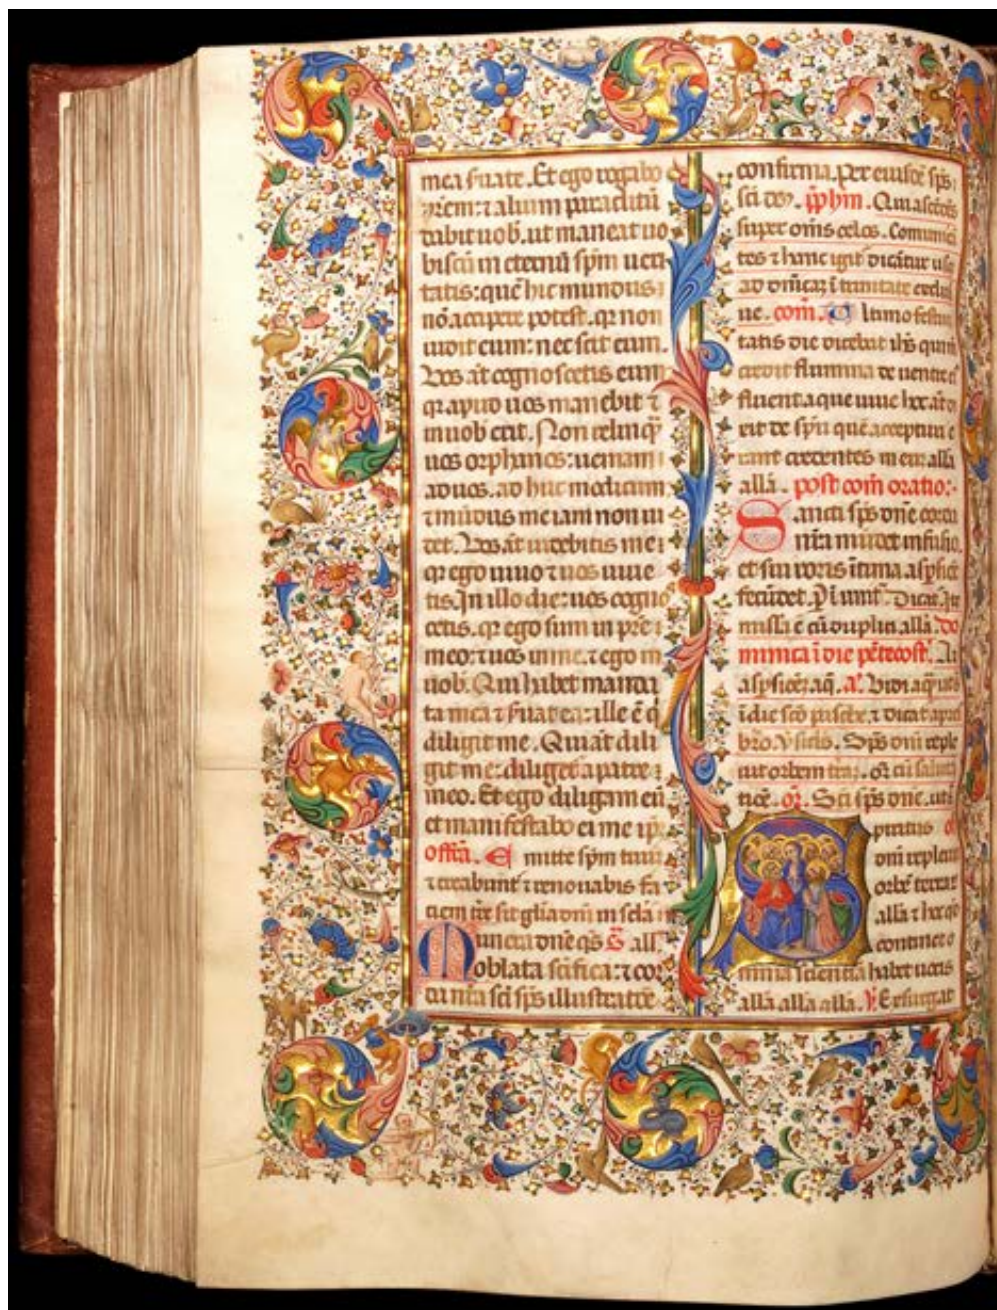 mea s̃uate. Et ego rogabo
p̃rem: ⁊ alium paraclitũ
dabit uob. ut maneat uo
biscũ in eternũ sp̃m ueri
tatis: quẽ hic mundus
nõ accipere potest. qꝛ non
uidit eum: nec scit eum.
Vos at̃ cognoscetis eum
qꝛ apud uos manebit ⁊
in uob erit. Non relinq̃
uos orphanos: ueniam
ad uos. ad huc modicum
⁊ mũdus me iam non ui
det. Vos at̃ uidebitis me
qꝛ ego uiuo ⁊ uos uiue
tis. In illo die: uos cogno
cetis. qꝛ ego sum in pr̃e
meo: ⁊ uos in me. ⁊ ego in
uob. Qui habet manda
ta mea ⁊ s̃uat ea: ille ẽ q̃
diligit me. Qui at̃ dili
git me: diliget̃ a patre
meo. Et ego diligam eũ
et manifestabo ei me ip̃
offr̃a. E mitte sp̃m tuũ
⁊ creabunt̃ ⁊ renouabis fa
ciem tr̃e sit gl̃ia dñi in sc̃la
Munera dñe q̃s all̃
oblata sc̃ifica: ⁊ cor
da nr̃a sc̃i sp̃s illustratõe
confirma. per eiusdẽ sp̃s
sc̃i Qui ascẽdẽs
super om̃s celos. Comunicã
tes ⁊ hanc igit̃ dicãtur usqꝫ
ad dñicaꝫ ĩ trinitate exclusi
ue. com̃. U ltimo festiui
tatis die dicebat ih̃s qui in
me credit flumina de uentre ei
fluent aque uiue hoc at̃ di
xit de sp̃u quẽ accepturi e
rant credentes in eũ all̃a
all̃a. post com̃ oratio:
Sancti sp̃s dñe corda
nr̃a mũdet infusio.
et sui roris ĩtima asp̃sione
fecũdet. Dicat̃
missa ẽ cũ duplici all̃a. Do
minica ĩ die pẽtecost̃. Ad
a᷒. Vidi aquã
ĩ die sc̃o pasche, ⁊ dicat̃
Sp̃s dñi reple
uit orbem terr̃. or̃ cũ
or̃. Sc̃i sp̃s dñe. uti
Spiritus
dñi repleuit
orbẽ terraꝝ
all̃a ⁊ hoc qd̃
continet o
mnia scientia habet uocis
all̃a all̃a all̃a. V̷ Exsurgat